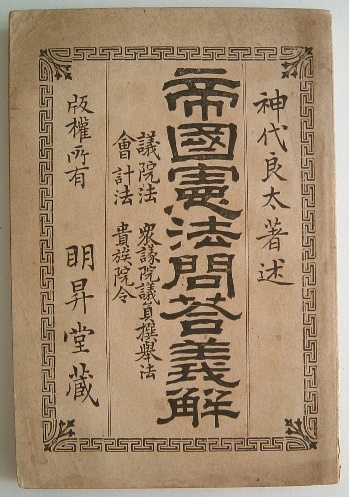 神代良太著述
帝國憲法問荅義解
議院法 衆議院議員撰舉法
會計法 貴族院令
版權所有
明昇堂藏